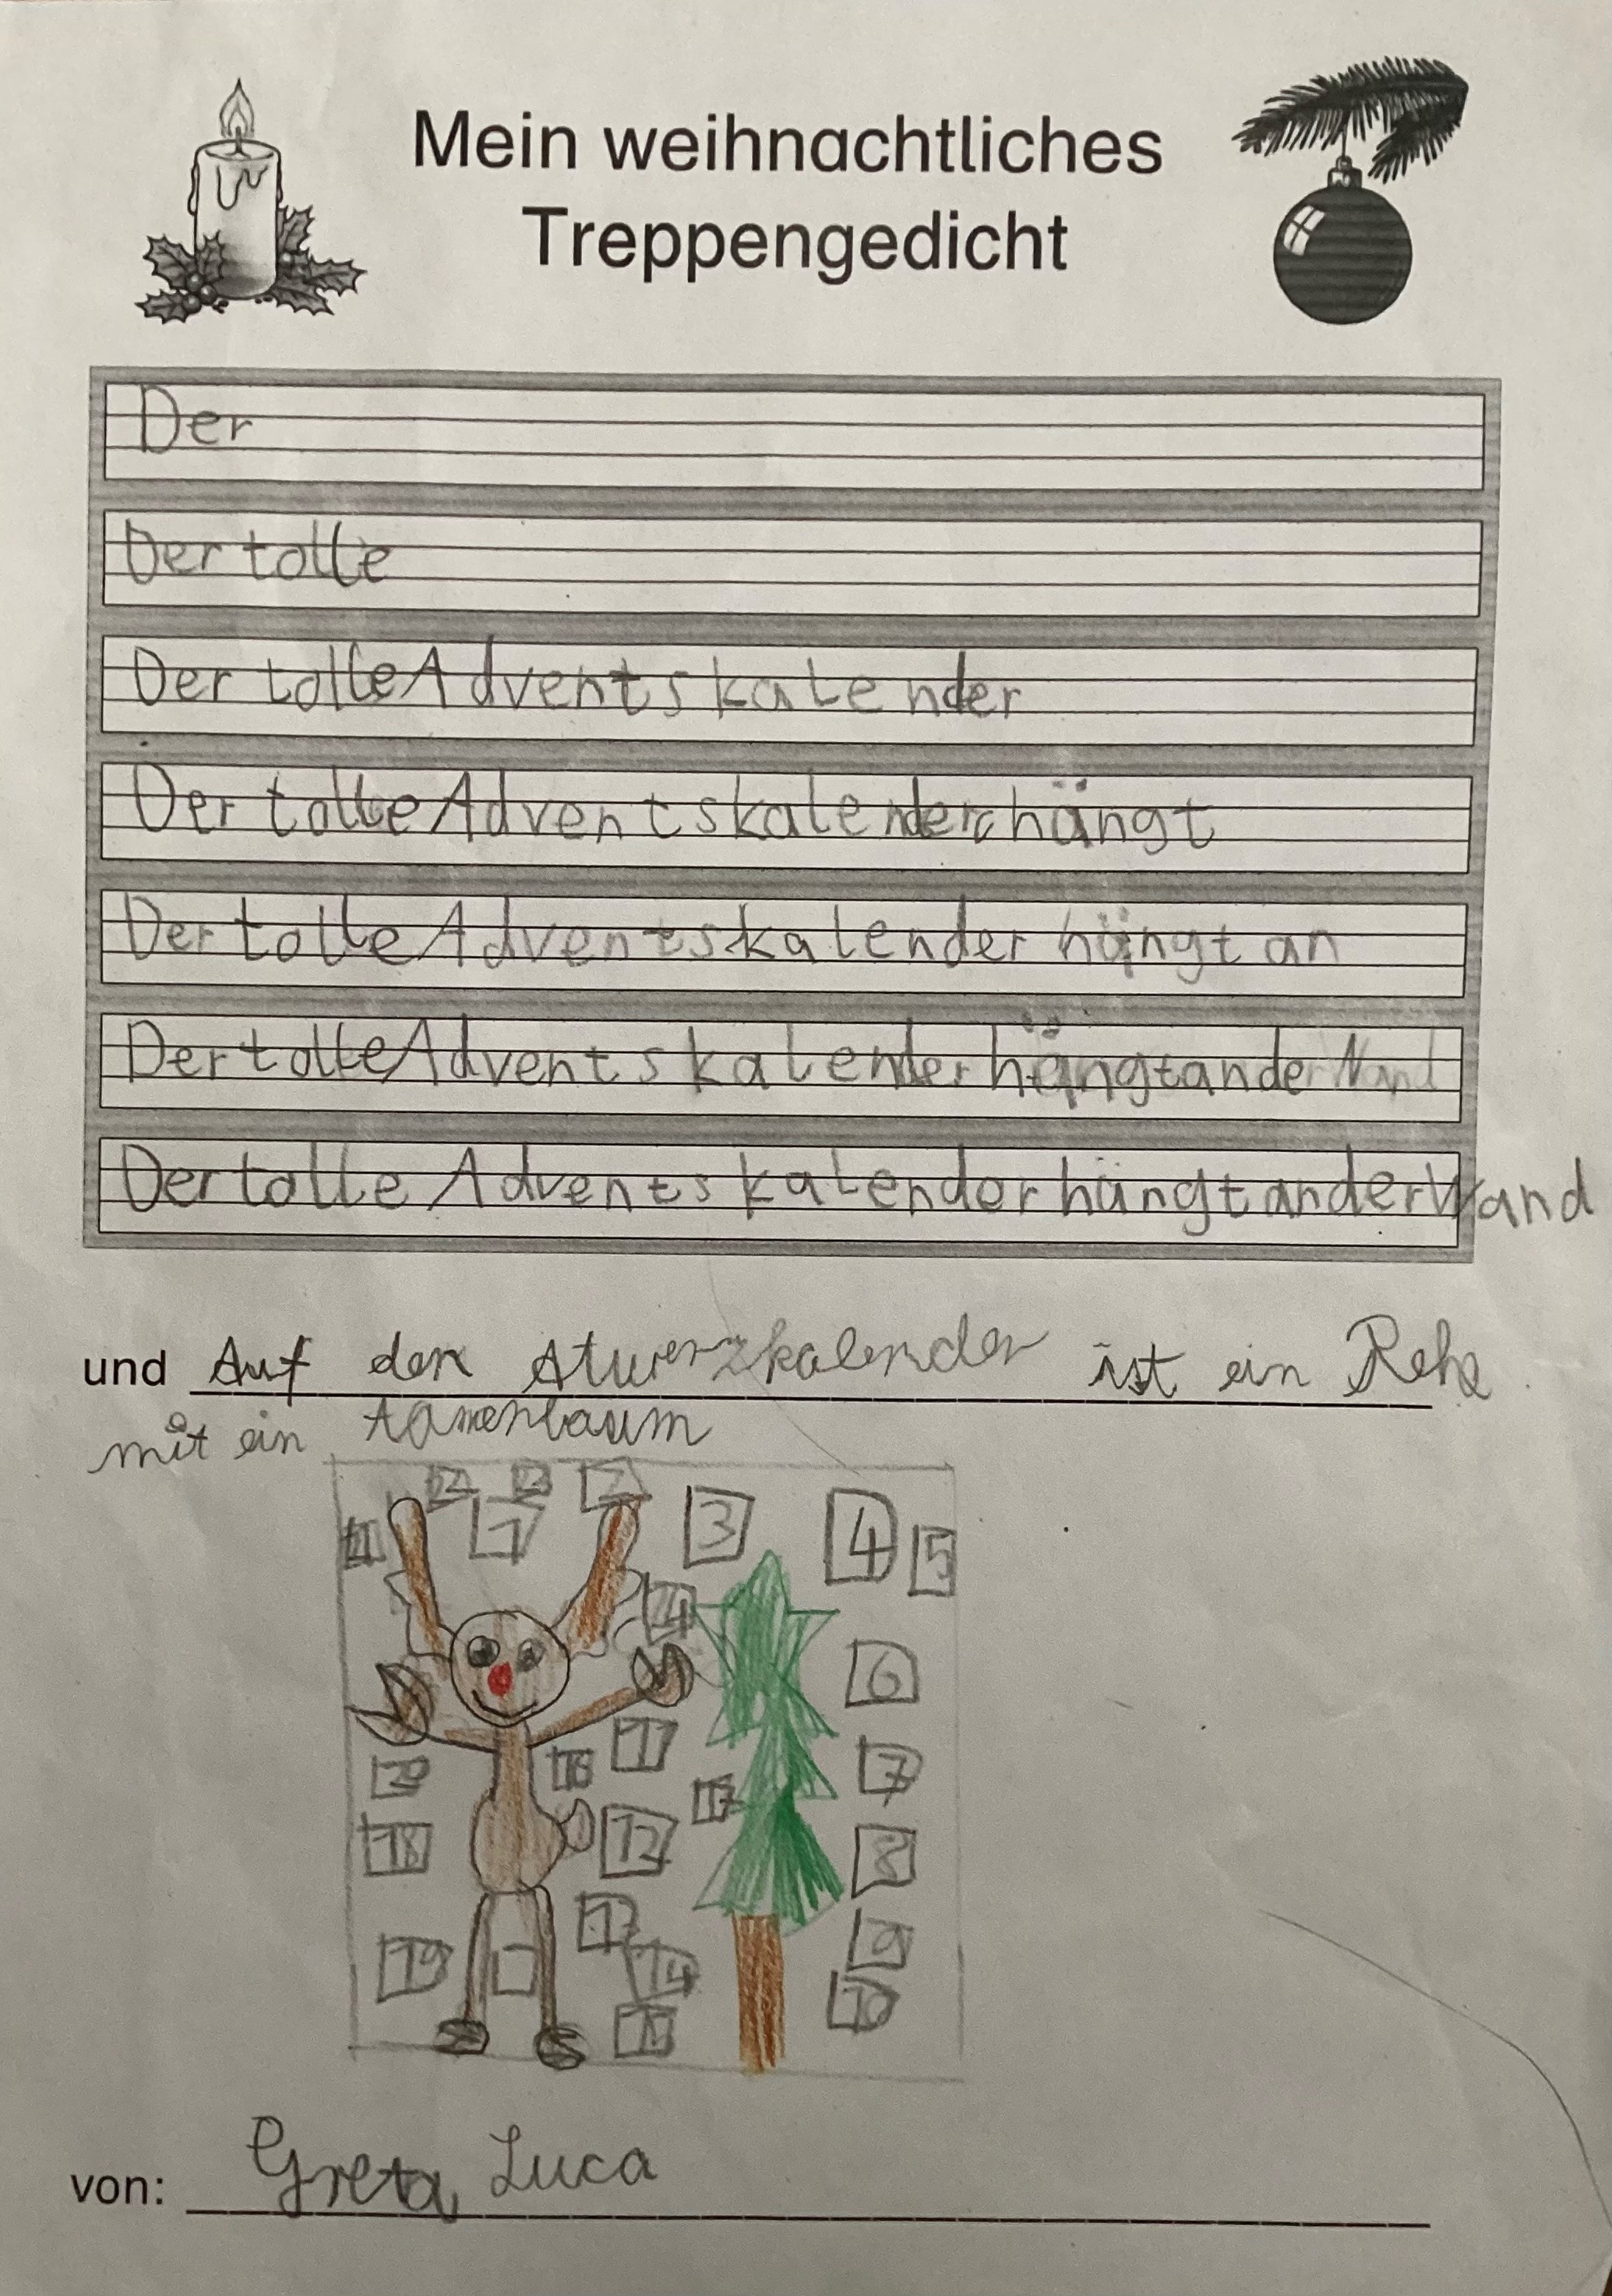 Mein weihnachtliches
Treppengedicht
Der
Der tolle
Der tolle Adventskalender
Der tolle Adventskalender hängt
Der tolle Adventskalender hängt an
Der tolle Adventskalender hängt an der Wand
Der tolle Adventskalender hängt an der Wand
und Auf den Atwenzkalender ist ein Rehe
mit ein tannenbaum
22 23 2
21 1 3 4 5
24
6
11
20 16 7
17
18 12 8
13
9
19 14
10
15
von: Greta Luca